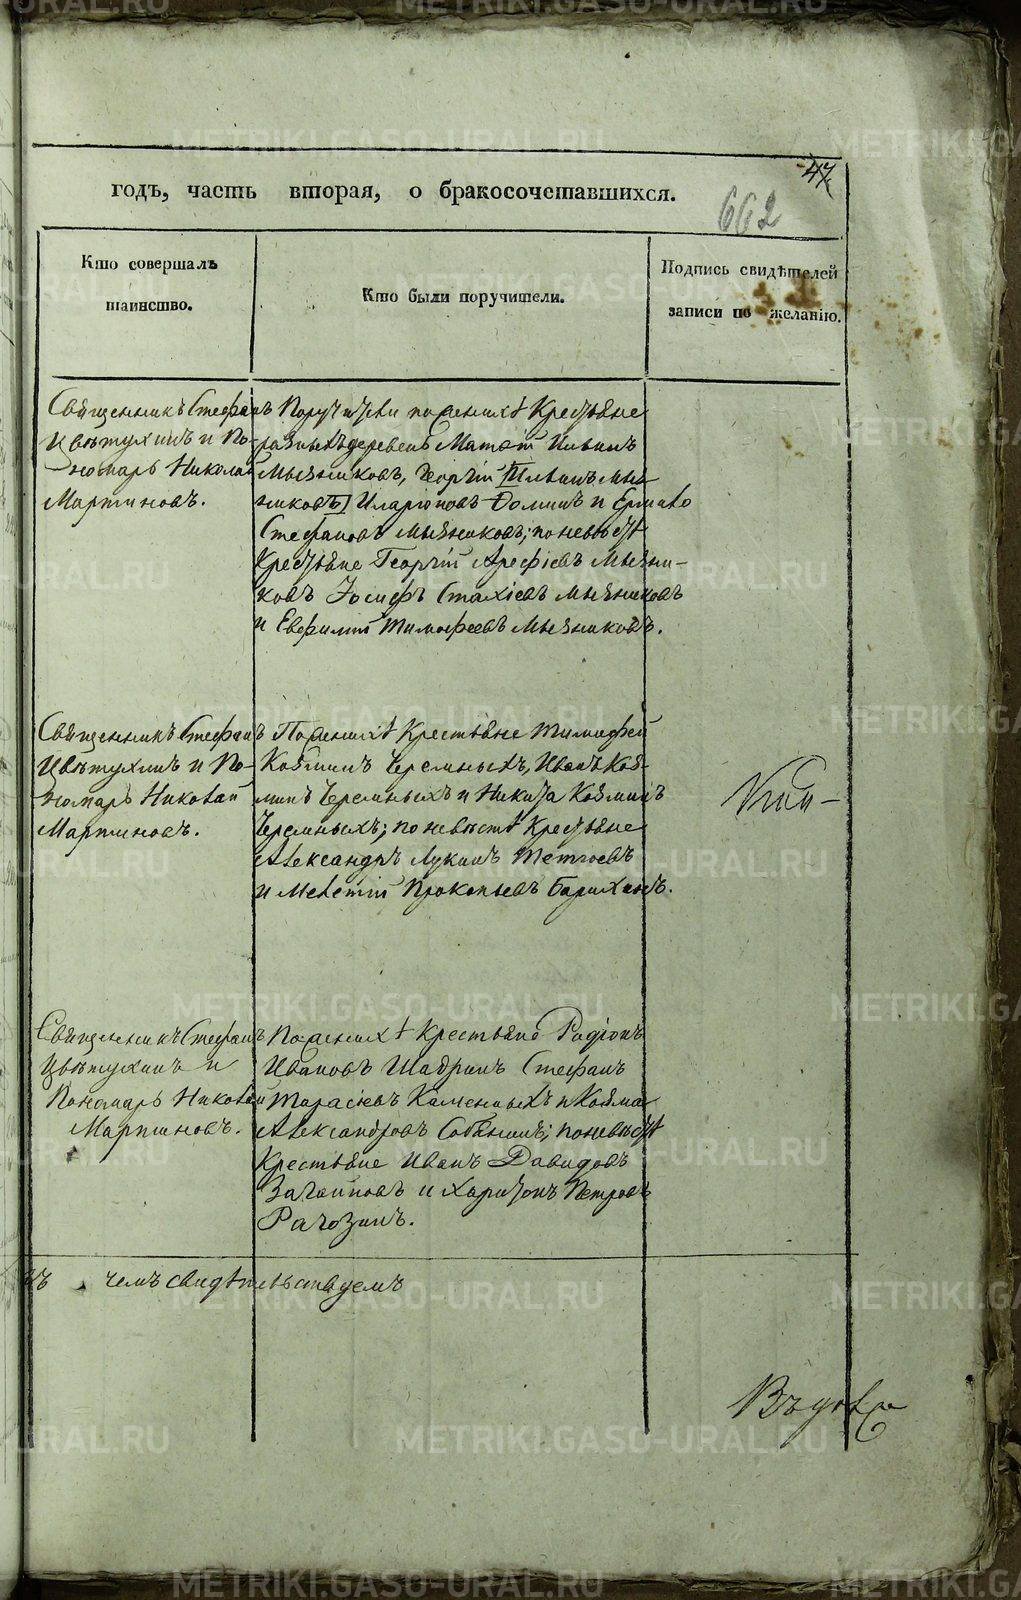 47
годъ, часть вторая, о бракосочетавшихся.
662
Кто совершалъ таинство.
Кто были поручители.
Подпись свидѣтелей записи по желанію.
Священникъ Стефанъ
Цвѣтухинъ и По-
номарь Николай
Мартиновъ.
Поручители по женихѣ Крестьяне
разныхъ деревень
Мызниковъ, Георгій
Иларіоновъ
Стефановъ Мызниковъ; по невѣстѣ
Крестьяне Георгій Арефіевъ Мызни-
ковъ Іосифъ Стахіевъ Мызниковъ
и Евфимій Тимофеевъ Мызниковъ.
Священникъ Стефанъ
Цвѣтухинъ и По-
номарь Николай
Мартиновъ.
По женихѣ Крестьяне Тимофей
Козминъ Черемныхъ, Иванъ Коз-
минъ Черемныхъ и Никита Козминъ
Черемныхъ; по невѣстѣ Крестьяне
Александръ Лукинъ
и Мелетій Прокопьевъ
Священникъ Стефанъ
Цвѣтухинъ и
Пономарь Николай
Мартиновъ.
По женихѣ Крестьяне Родіонъ
Ивановъ Шадринъ Стефанъ
Тарасовъ Каменныхъ и Козма
Александровъ Собянинъ; по невѣстѣ
Крестьяне Иванъ Давидовъ
и Харитонъ Петровъ
Рагозинъ.
чемъ свидѣтельствуемъ
METRIKI.GASO-URAL.RU